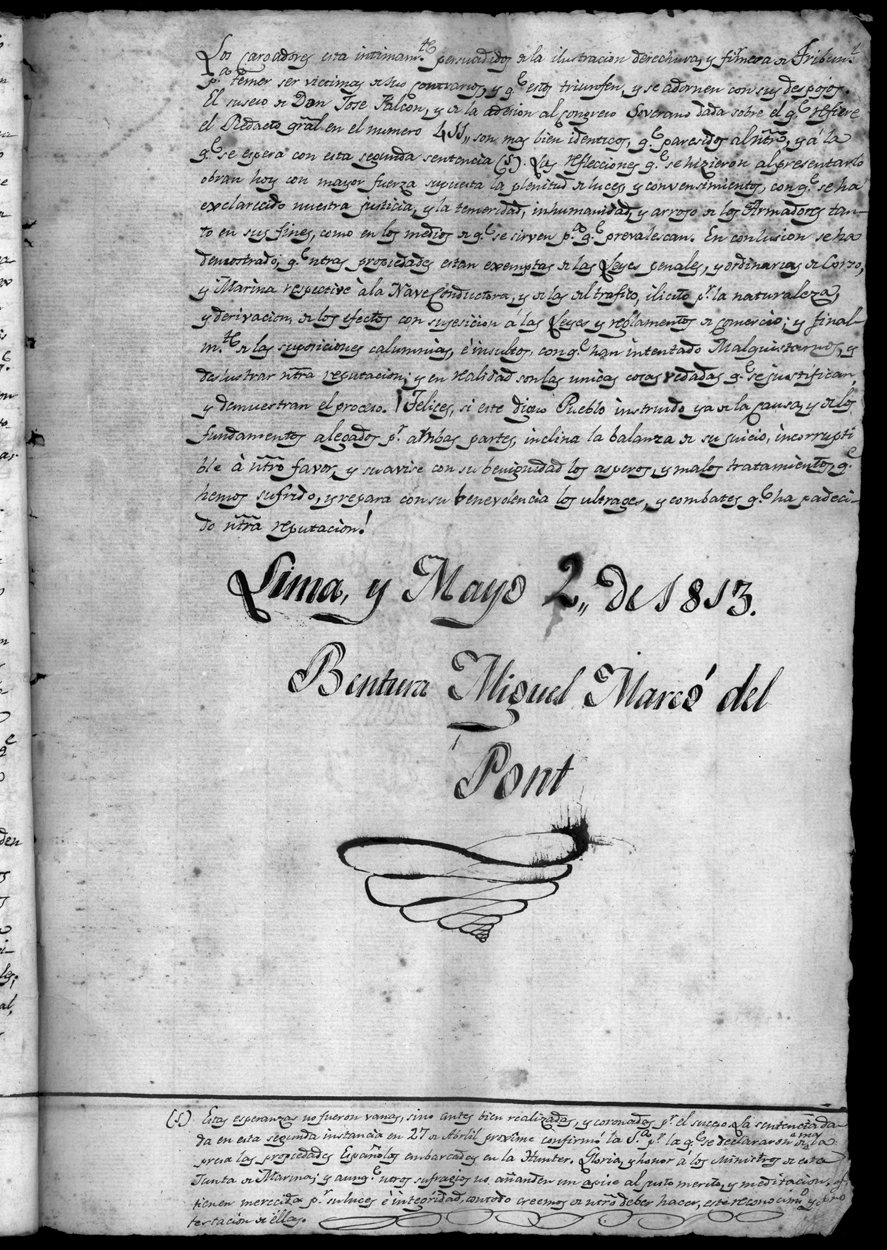 Los cargadores esta intimam.te persuadidos de la ilustracion derechura, y firmeza de Tribun.l
p.a temer ser victimas de sus contrarios, y q.e estos triunfen, y se adornen con sus despojos.
El suseso de Don Jose Falcon, y de la adision al congreso Soverano dada sobre el q.e refiere
el Redacto gral en el numero 411,, son mas bien identicos, q.e paresidos al ntro, y á la
q.e se espera con esta segunda sentencia (S). Las reflecciones q.e se hizieron al presentarlo
obran hoy con mayor fuerza supuesta la plenitud de luces, y convensimientos, con q.e se ha
exclarecido nuestra justicia, y la temeridad, inhumanidad, y arrojo de los Armadores tan-
to en sus fines, como en los medios de q.e se sirven p.a q.e prevalescan. En conlusion se ha
demostrado; q.e ntras propiedades estan exemptas de las Leyes penales, y ordinarias de Corso,
y Marina respective à la Nave Conductora, y de las del trafico, ilicito p.r la naturaleza,
y derivacion, de los efectos con sujesicion á las Leyes y reglamentos de comercio; y final-
m.te de las suposiciones calumnias, é insultos, con q.e han intentado Malquistarnos, es
deslustrar ntra reputacion; y en realidad son las unicas cosas vedadas q.e se justifican,
y demuestran el proceso. ¡Felices, si este digno Pueblo instruido ya de la causa, y de los
fundamentos alegados p.r ambas partes, inclina la balanza de su juicio, incorrupti
ble à ntro favor, y suavise con su benignidad los asperos, y malos tratamientos, q.e
hemos sufrido, y repara con su benevolencia los ultrages, y combates q.e ha padeci-
do ntra reputacion!
Lima, y Mayo 2,, de 1813.
Bentura Miguel Marcó del
Pont
(S) Estas esperanzas no fueron vanas, sino antes bien realizadas, y coronados p.r el suceso. La sentencia da
da en esta segunda instancia en 27 de Abril proximo confirmó la S.a p.r la q.e se declararon de
presa las propiedades Españolas embarcadas en la Hunter. Gloria, y honor á los Ministros de esta
Junta de Marina; y aunq.e ntros sufragios no añanden un apise al justo merito, y meditacion, q.e
tienen merecida p.r sus luces é integridad, con todo creemos de ntro deber hacer, este reconocim.to y pro
testacion de ellas.